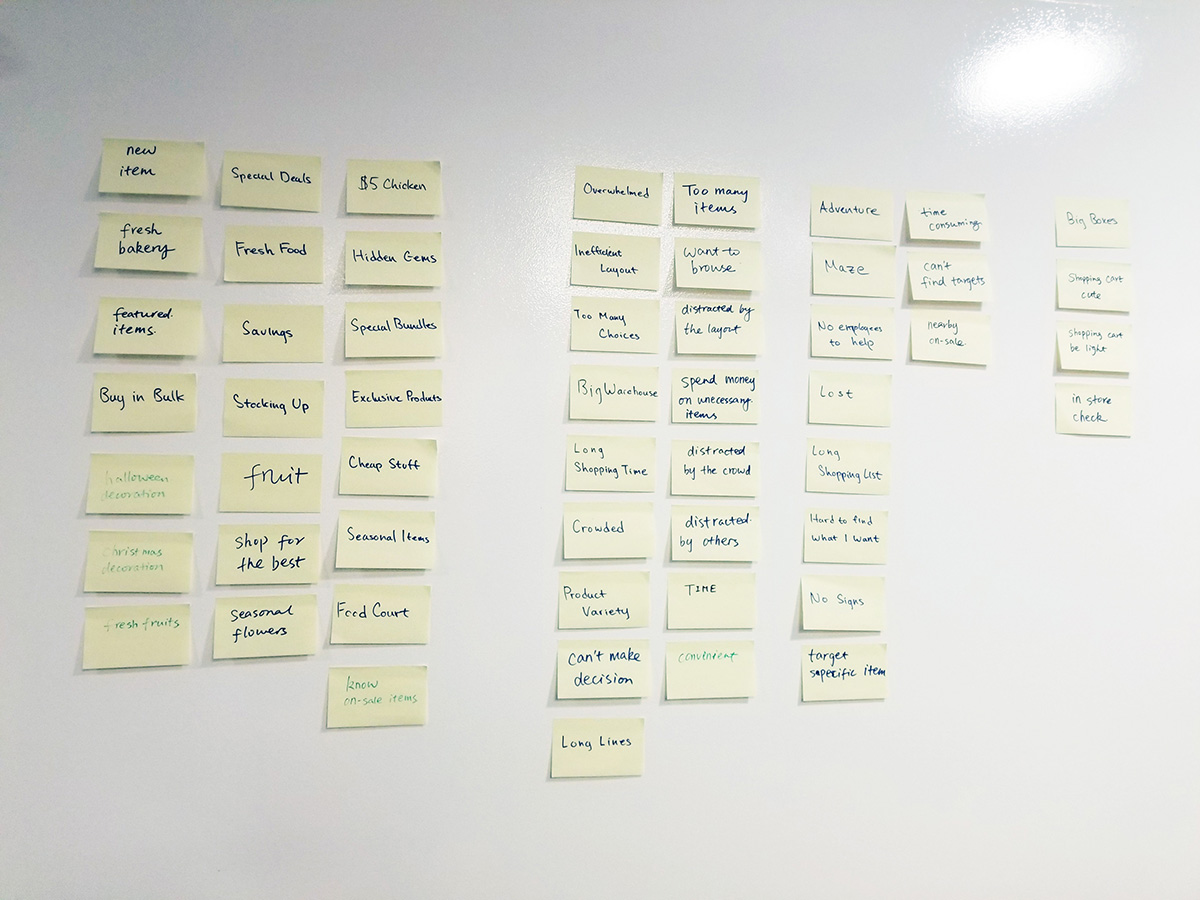 new
item
fresh
bakery
featured
items.
Buy in Bulk
halloween
decoration
christmas
decoration
fresh fruits
Special Deals
Fresh Food
Savings
Stocking Up
fruit
shop for
the best
seasonal
flowers
$5 Chicken
Hidden Gems
Special Bundles
Exclusive Products
Cheap Stuff
Seasonal Items
Food Court
know
on-sale items
Overwhelmed
Inefficient
Layout
Too Many
Choices
Big Warehouse
Long
Shopping Time
Crowded
Product
Variety
can't make
decision
Long Lines
Too many
items
want to
browse
distracted by
the layout
spend money
on unecessary
items
distracted
by the crowd
distracted
by others
TIME
convinient
Adventure
Maze
No employees
to help
Lost
Long
Shopping List
Hard to find
what I want
No Signs
target
sopecific item
time
consuming.
can't
find targets
nearby
on-sale
Big Boxes
Shopping cart
cute
shopping cart
be light
in store
check